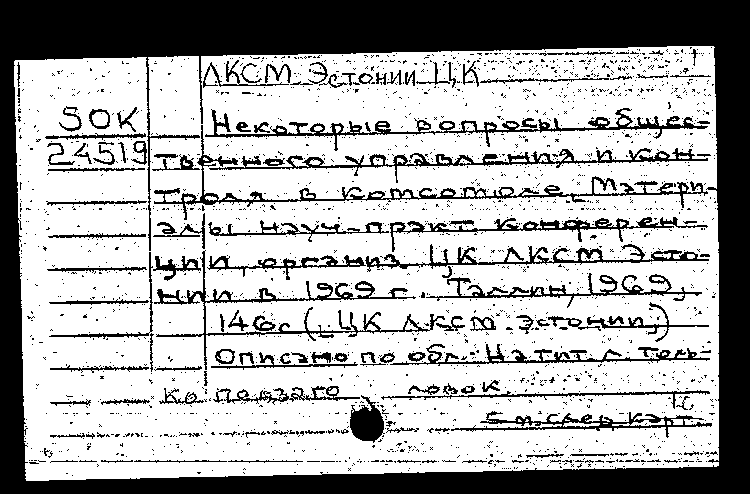 ЛКСМ Эстонии ЦК
50К
24519
Некоторые вопросы общес-
твенного управления и кон-
троля в комсомоле. Матери-
алы науч.-практ. конферен-
ции, организ. ЦК ЛКСМ Эсто-
нии в 1969 г. Таллин, 1969,
146с (ЦК ЛКСМ Эстонии)
Описано по обл. На тит. л. толь-
ко подзаго ловок.
См. след. карт.